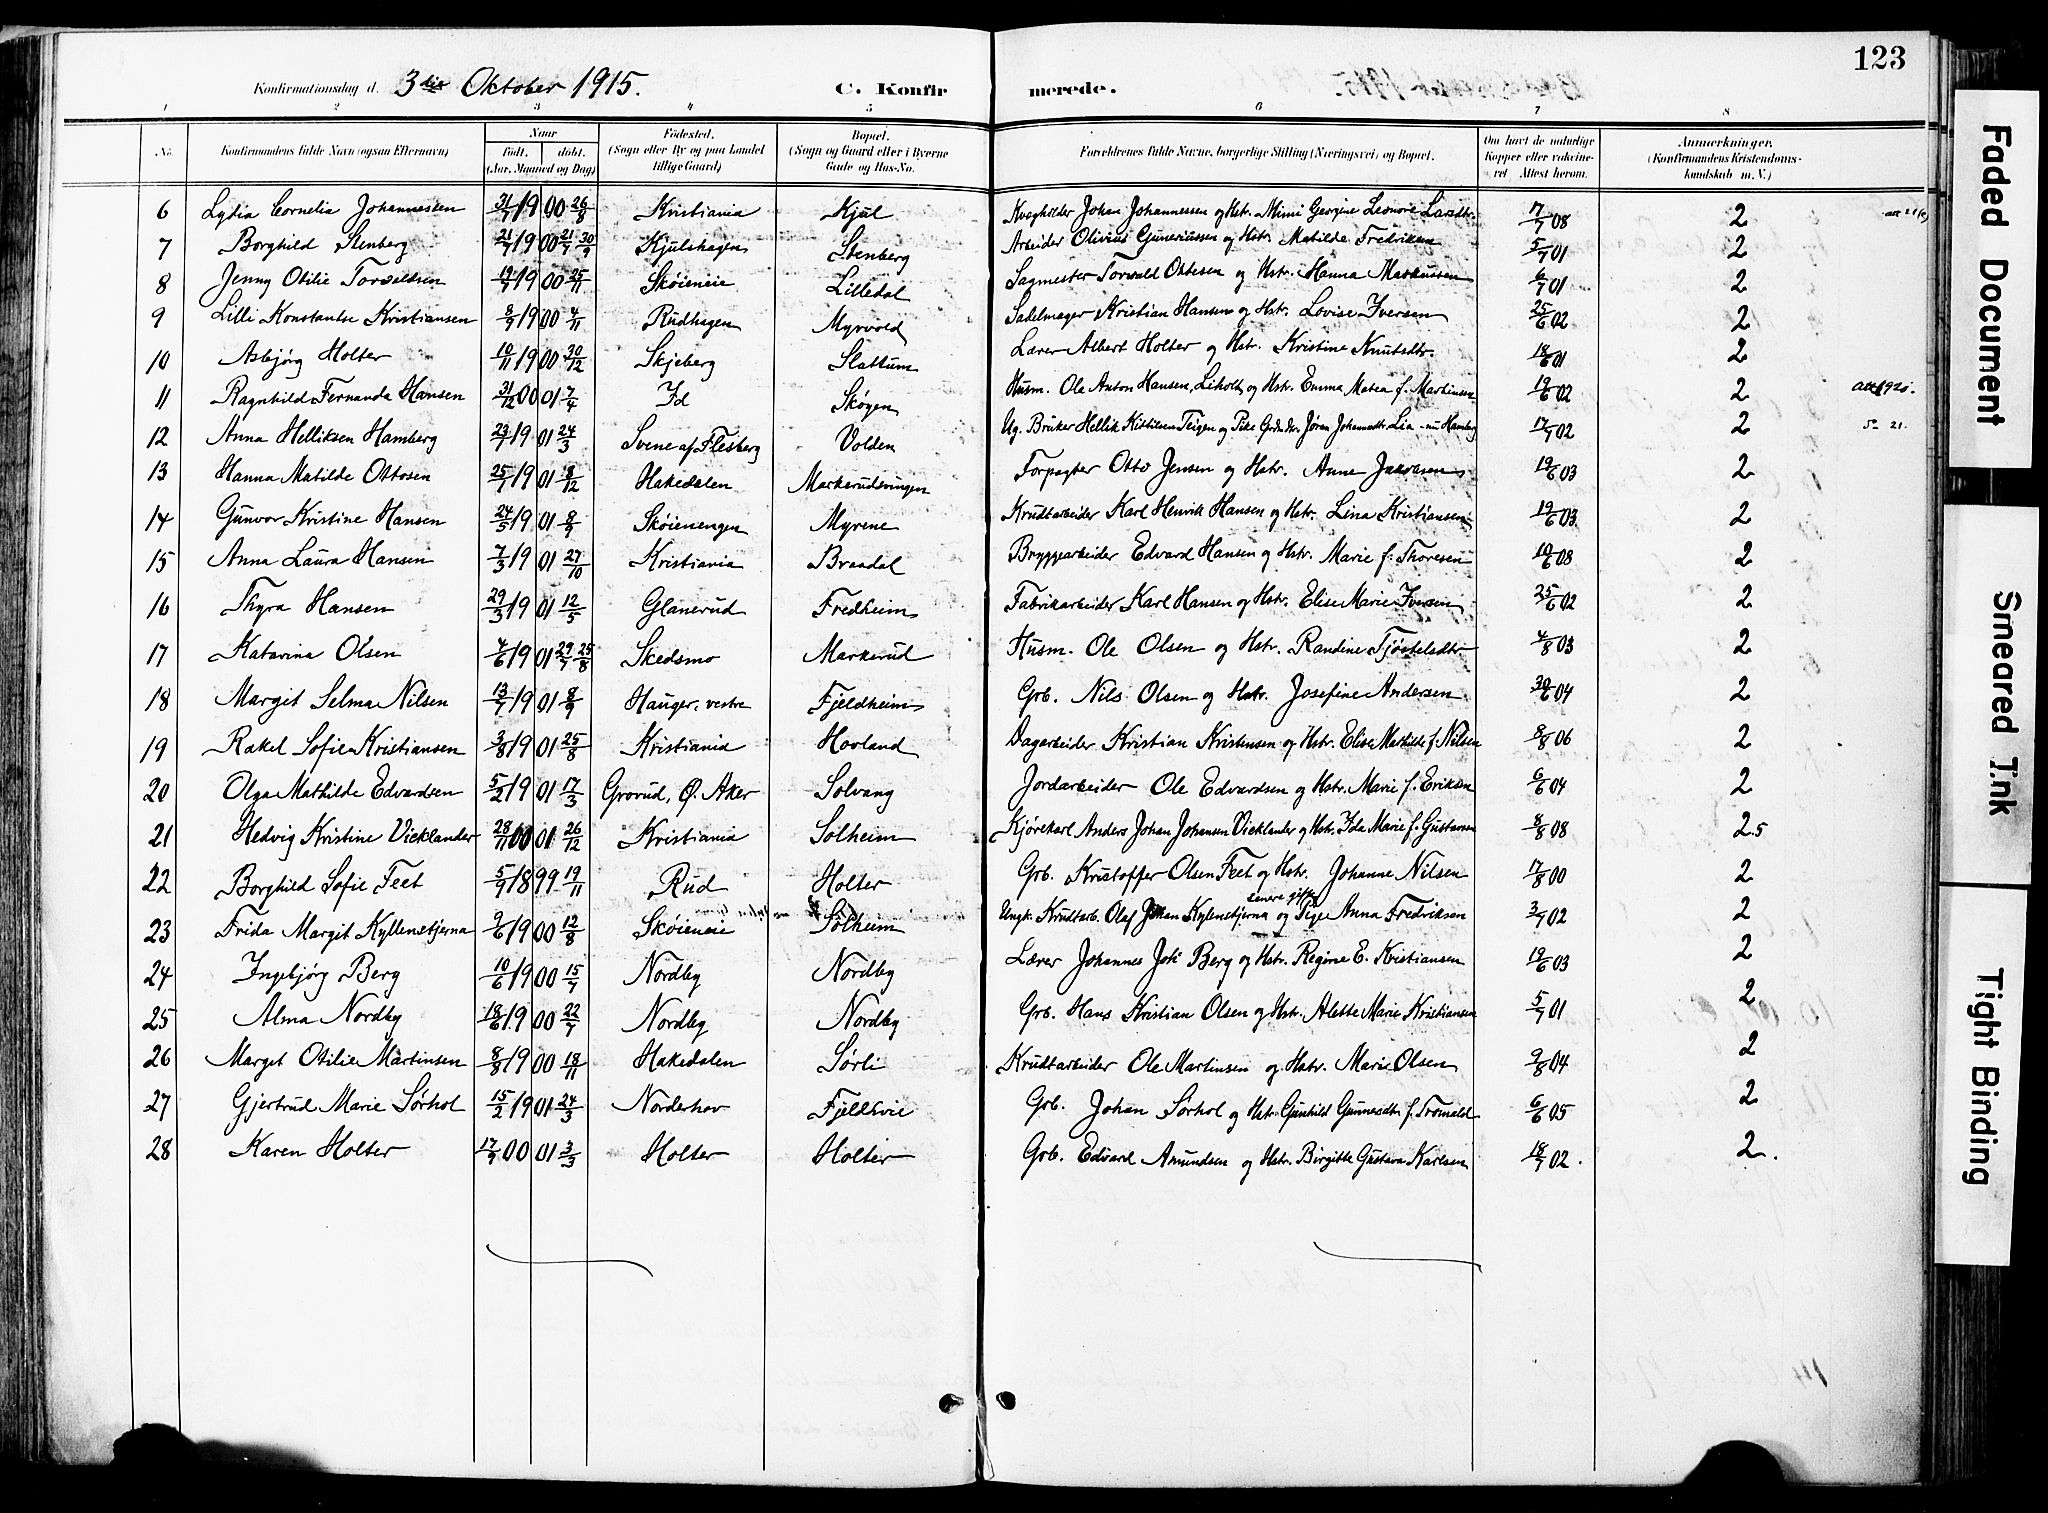 123
Konfirmationsdag d. 3die Oktober 1915. C. Konfirmerede.
1 2 3 4 5 6 7 8
No. Konfirmandens fulde Navn (ogsaa Efternavn) Naar født. døbt. (Aar, Maaned og Dag) Fødested. (Sogn eller By og paa Landet tillige Gaard) Bopæl. (Sogn og Gaard eller i Byerne Gade og Hus-No. Forældrenes fulde Navne, borgerlige Stilling (Næringsvei) og Bopæl. Om havt de naturlige Kopper eller vakcineret Attest herom. Anmerkninger. (Konfirmandens Kristendomskundskab m. V.)
6 Lydia Cornelia Johannessen 31/7 1900 26/8 Kristiania Kjul Johan Johannessen og Hstr. Mimi Georgine Leonore Larsdtr. 17/7 08 2
7 Borghild Stenberg 21/7 1900 30/9 Kjulshagen Stenberg Arbeider Olivius Guneriussen og Hstr. Matilde Fredriksen 5/7 01 2
8 Jenny Otilie Torvaldsen 19/7 1900 25/11 Skøieneie Lilledal Sagmester Torvald Ottesen og Hstr. Hanna Markussen 6/7 01 2
9 Lilli Konstantse Kristiansen 8/9 1900 4/11 Rudhagen Myrvold Sadelmager Kristian Hansen og Hstr. Lovise Iversen 25/6 02 2
10 Asbjørg Holter 10/11 1900 30/12 Skjeberg Slattum Lærer Albert Holter og Hstr. Kristine Knutsdtr. 18/6 01 2
11 Ragnhild Fernanda Hansen 31/12 00 01 7/4 Id Skøyen Husm. Ole Anton Hansen, Liholt, og Hstr. Emma Matea f. Martinsen 19/6 02 2 att 1920.
12 Anna Helliksen Hamberg 23/1 1901 24/3 Svene af Flesberg Volden Ug. Bruker Hellik Kittilsen Teigen og Pike Jøran Johannesdtr. Lia - nu Hamberg 17/7 02 2 21.
13 Hanna Matilde Ottosen 25/7 1901 8/12 Hakedalen Markerudsvingen Forpagter Otto Jensen og Hstr. Anne Jakobsen 19/6 03 2
14 Gunvor Kristine Hansen 24/5 1901 8/9 Skøienengen Myrene Krudtarbeider Karl Henrik Hansen og Hstr. Lina Kristiansen 19/6 03 2
15 Anna Laura Hansen 7/3 1901 27/10 Kristiania Braadal Bryggearbeider Edvard Hansen og Hstr. Marie f. Thoresen 10/6 08 2
16 Thyra Hansen 29/3 1901 12/5 Glanerud Fredheim Fabrikarbeider Karl Hansen og Hstr. Elise Marie Iversen 25/6 02 2
17 Katarina Olsen 4/6 1901 29/7 25/8 Skedsmo Markerud Husm. Ole Olsen og Hstr. Randine Tjøstelsdtr 4/8 03 2
18 Margit Selma Nilsen 13/7 1901 8/9 Hauger, vestre Fjeldheim Grb. Nils Olsen og Hstr. Josefine Andersen 30/6 04 2
19 Rakel Sofie Kristiansen 3/8 1901 25/8 Kristiania Hovland Dagarbeider Kristian Kristensen og Hstr. Elise Mathilde f. Nilsen 8/8 06 2
20 Olga Mathilde Edvardsen 5/2 1901 17/3 Grorud, Ø. Aker Solvang Jordarbeider Ole Edvardsen og Hstr. Marie f. Eriksen 6/6 04 2
21 Hedvig Kristine Vicklander 28/11 00 01 26/12 Kristiania Solheim Kjørekarl Anders Johan Johansen Vicklander og Hstr. Ida Marie f. Gustavsen 8/8 08 2.5
22 Borghild Sofie Feet 5/9 1899 19/11 Rud Holter Grb. Kristoffer Olsen Feet og Hstr. Johanne Nilsen 17/8 00 2
senere gifte
23 Frida Margit Kyllenstjerna 9/6 1900 12/8 Skøieneie Solheim Ungk. Krudtarb. Olaf Johan Kylenstjerna og Pige Anna Fredriksen 3/7 02 2
24 Ingebjørg Berg 10/6 1900 15/7 Nordby Nordby Lærer Johannes Berg og Hstr. Regine E. Kristiansen 19/6 03 2
25 Alma Nordby 18/6 1900 22/7 Nordby Nordby Grb. Hans Kristian Olsen og Hstr. Alette Marie Kristiansen 5/7 01 2
26 Marget Otilie Martinsen 8/8 1900 18/11 Hakedalen Sørli Krudtarbeider Ole Martinsen og Hstr. Marie Olsen 9/8 04 2
27 Gjertrud Marie Sørhol 15/2 1901 24/3 Norderhov Fjellsvie Grb. Johan Sørhol og Hstr. Gunhild Gunnesdtr. f. Tromald 6/6 05 2
28 Karen Holter 17/9 00 01 3/3 Holter Holter Grb. Edvard Amundsen og Hstr. Birgitte Gustava Karlsen 18/7 02. 2.
Faded Document
Smeared Ink
Tight Binding